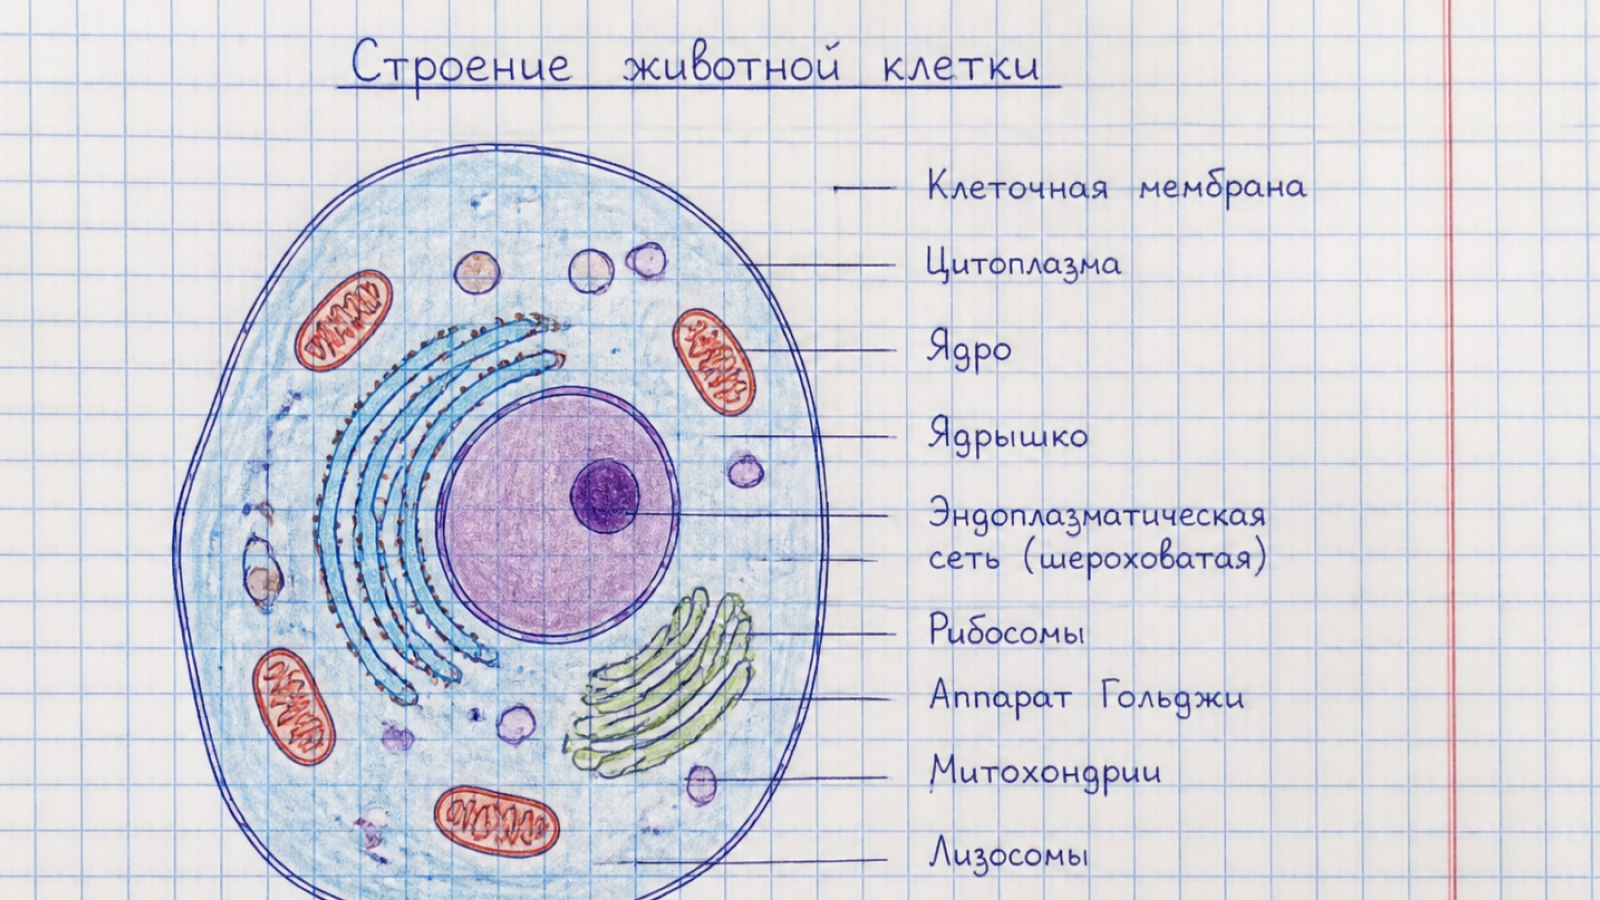 Строение животной клетки
Клеточная мембрана
Цитоплазма
Ядро
Ядрышко
Эндоплазматическая
сеть (шероховатая)
Рибосомы
Аппарат Гольджи
Митохондрии
Лизосомы